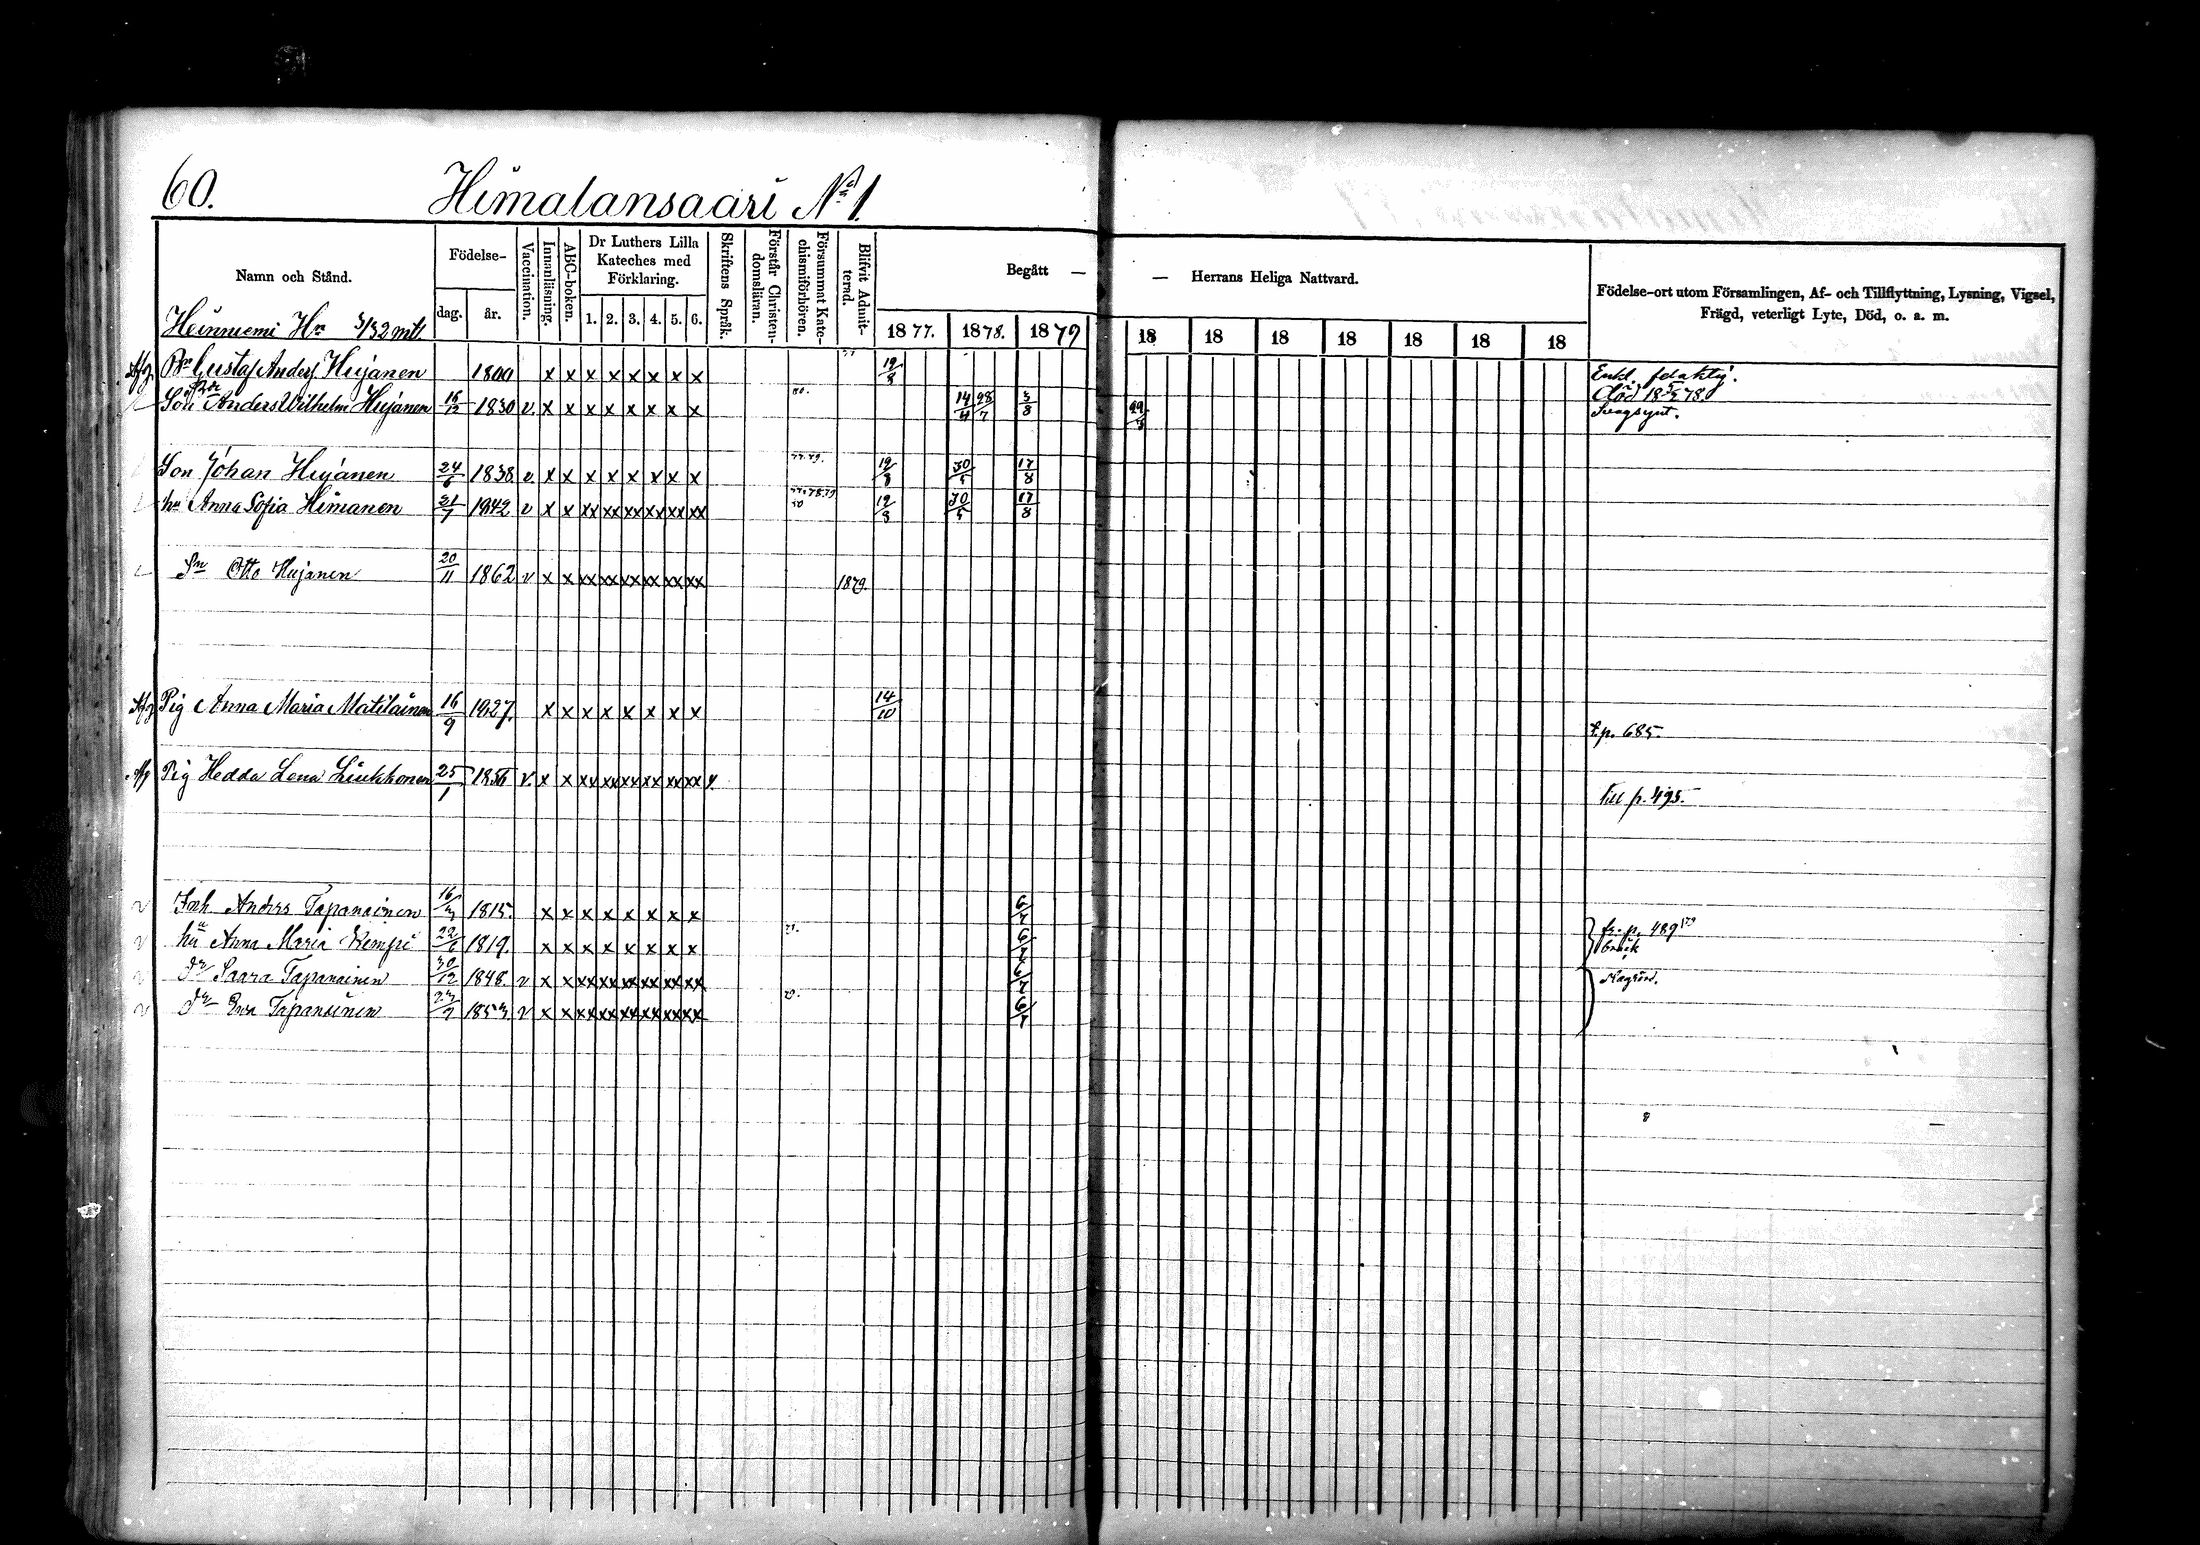 60. Himalansaari No 1.
Namn och Stånd.
Födelse-
dag.
år.
Vaccination.
Innanläsning.
ABC-boken.
Dr Luthers Lilla
Kateches med
Förklaring.
1. 2. 3. 4. 5. 6.
Skriftens Språk.
Förstår Christen-
domsläran.
Försummat Kate-
chismiförhören.
Blifvit Admit-
terad.
Begått — — Herrans Heliga Nattvard.
1877. 1878. 1879 18 18 18 18 18 18 18
Födelse-ort utom Församlingen, Af- och Tillflyttning, Lysning, Vigsel,
Frägd, veterligt Lyte, Död, o. a. m.
Heinniemi Hn 3/32 mtl.
Gustaf Anders Hujanen 1800 x x x x x x x x 19/8
Son Anders Wilhelm Hujanen 1830 v. x x x x x x x x 80. 14/4 28/7 3/8
Död 18 78.
Son Johan Hujanen 24/6 1838 v. x x x x x x x x 77.79. 19/8 30/5 17/8
hu Anna Sofia Himanen 21/7 1842 v x x xx xx xx xx xx xx 19/8 30/5 17/8
Sn Otto Hujanen 20/11 1862 v x x xx xx xx xx xx xx 1879.
Pig Anna Maria Matilainen 16/9 1827. x x x x x x x x 14/10
f.p. 685.
Pig Hedda Lena Liukkonen 25/1 1856 v. x x xx xx xx xx xx xx
Till p. 495.
Anders Tapanainen 1815. x x x x x x x x 6/7
hu Anna Maria Kemppi 22/6 1819. x x x x x x x x 6/7
fr. p. 489
Dr Saara Tapanainen 30/12 1848. v x x xx xx xx xx xx xx 6/7
Dr Eva Tapanainen 1853 v x x xx xx xx xx xx xx 6/7